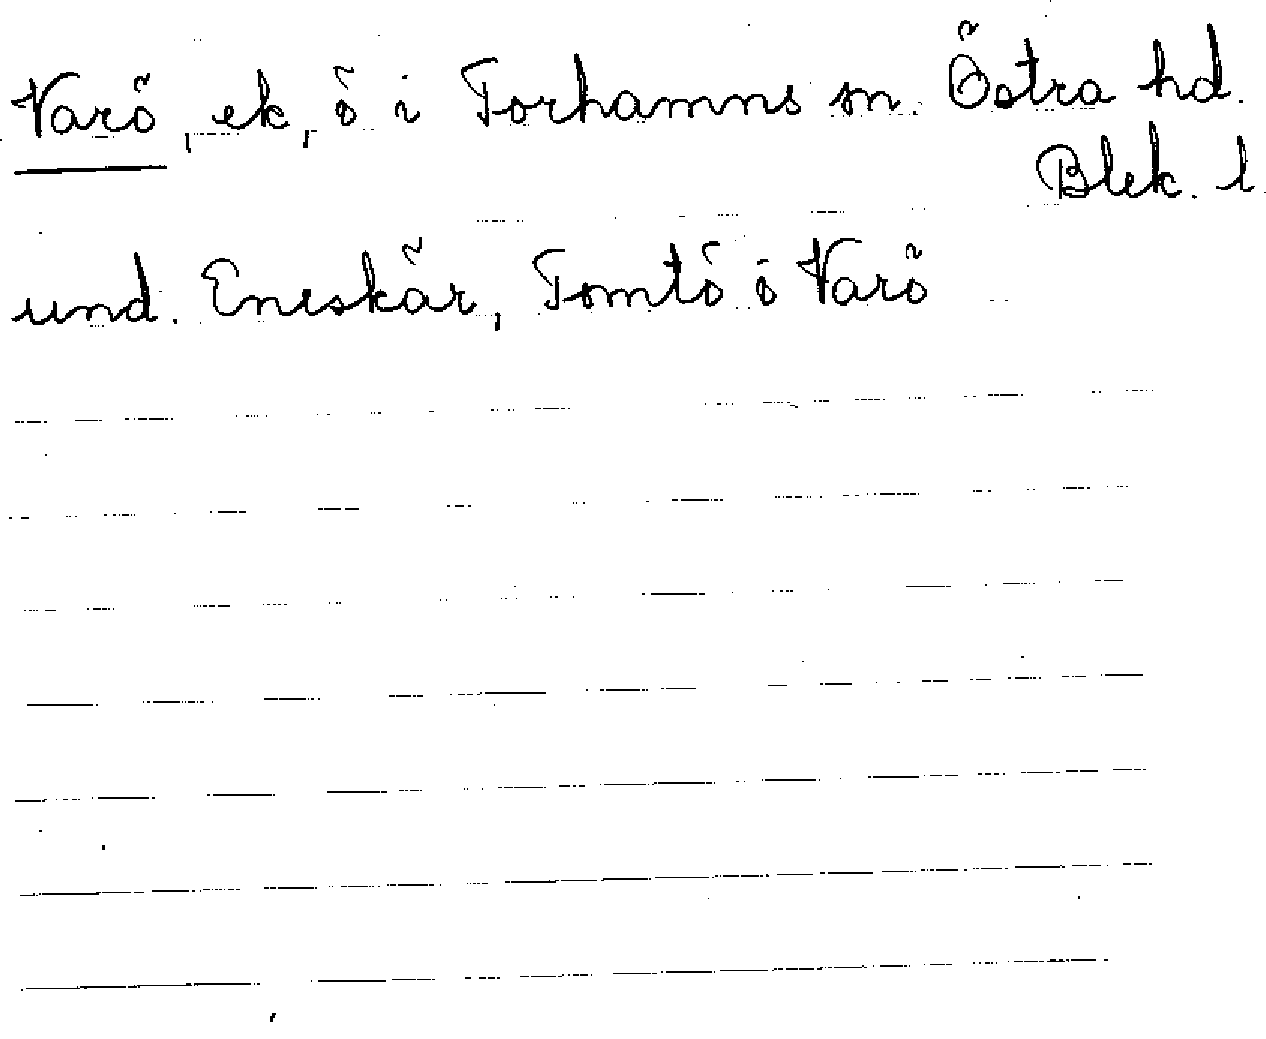 Varö, ek, ö i Torhamns sn. Östra hd.
Blek. l.
und. Eneskär, Tomtö o Varö